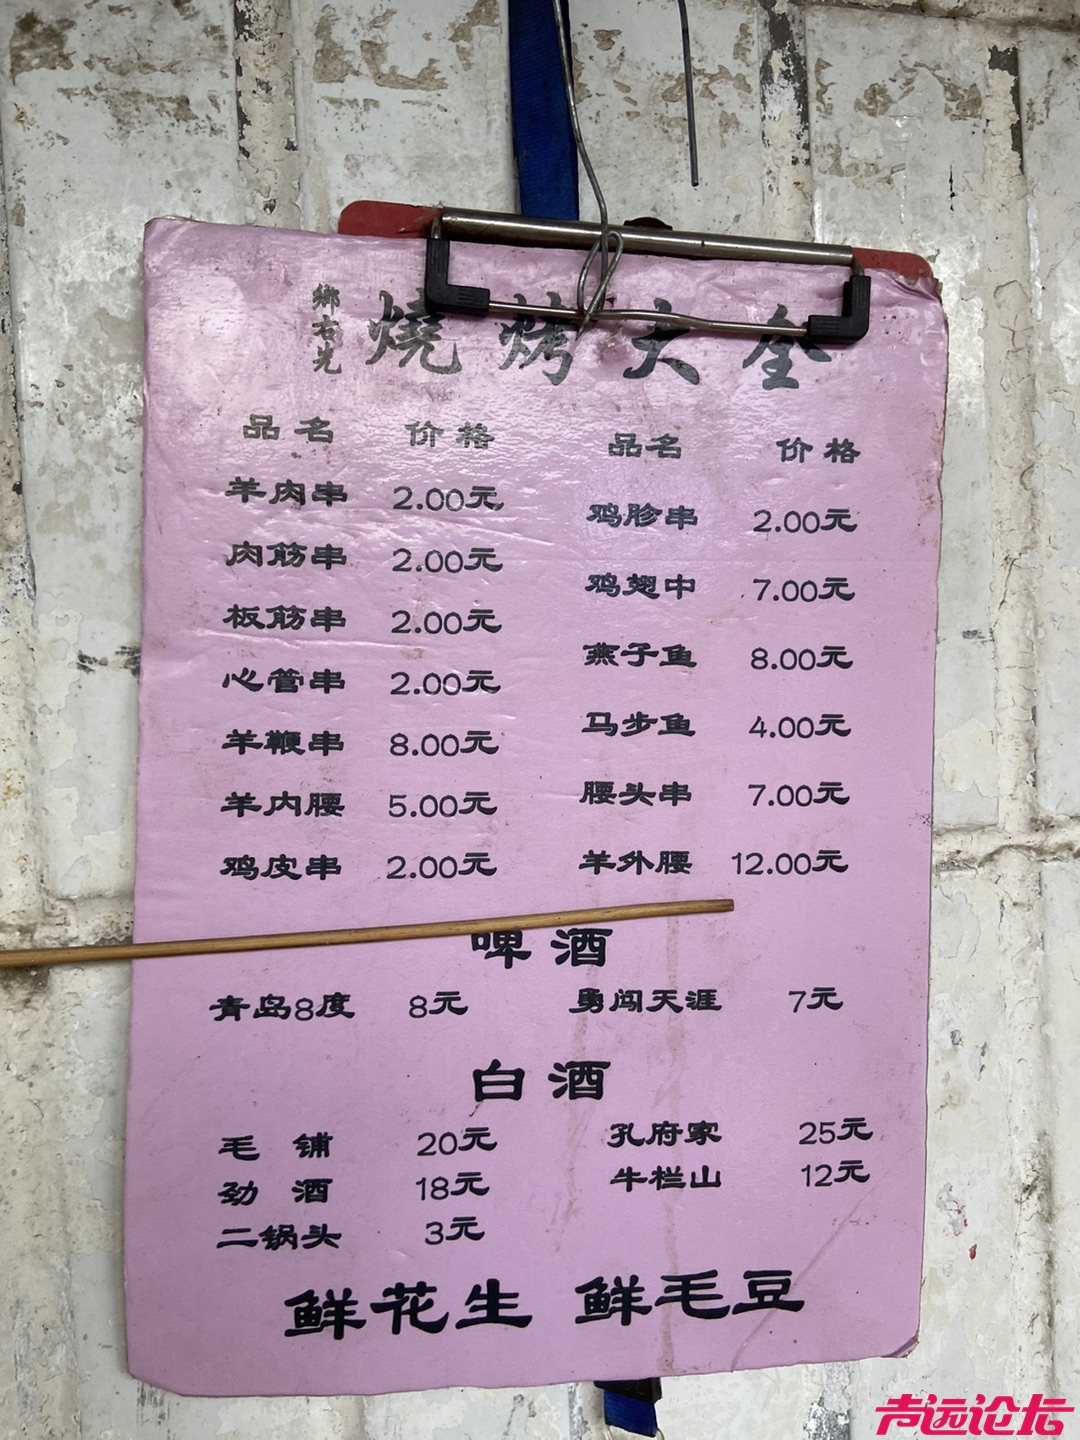 乡右先 燒烤大全
品名 价格 品名 价格
羊肉串 2.00元 鸡胗串 2.00元
肉筋串 2.00元 鸡翅中 7.00元
板筋串 2.00元 燕子鱼 8.00元
心管串 2.00元 马步鱼 4.00元
羊鞭串 8.00元 腰头串 7.00元
羊内腰 5.00元 羊外腰 12.00元
鸡皮串 2.00元
啤酒
青岛8度 8元 勇闯天涯 7元
白酒
毛铺 20元 孔府家 25元
劲酒 18元 牛栏山 12元
二锅头 3元
鲜花生 鲜毛豆
声远论坛